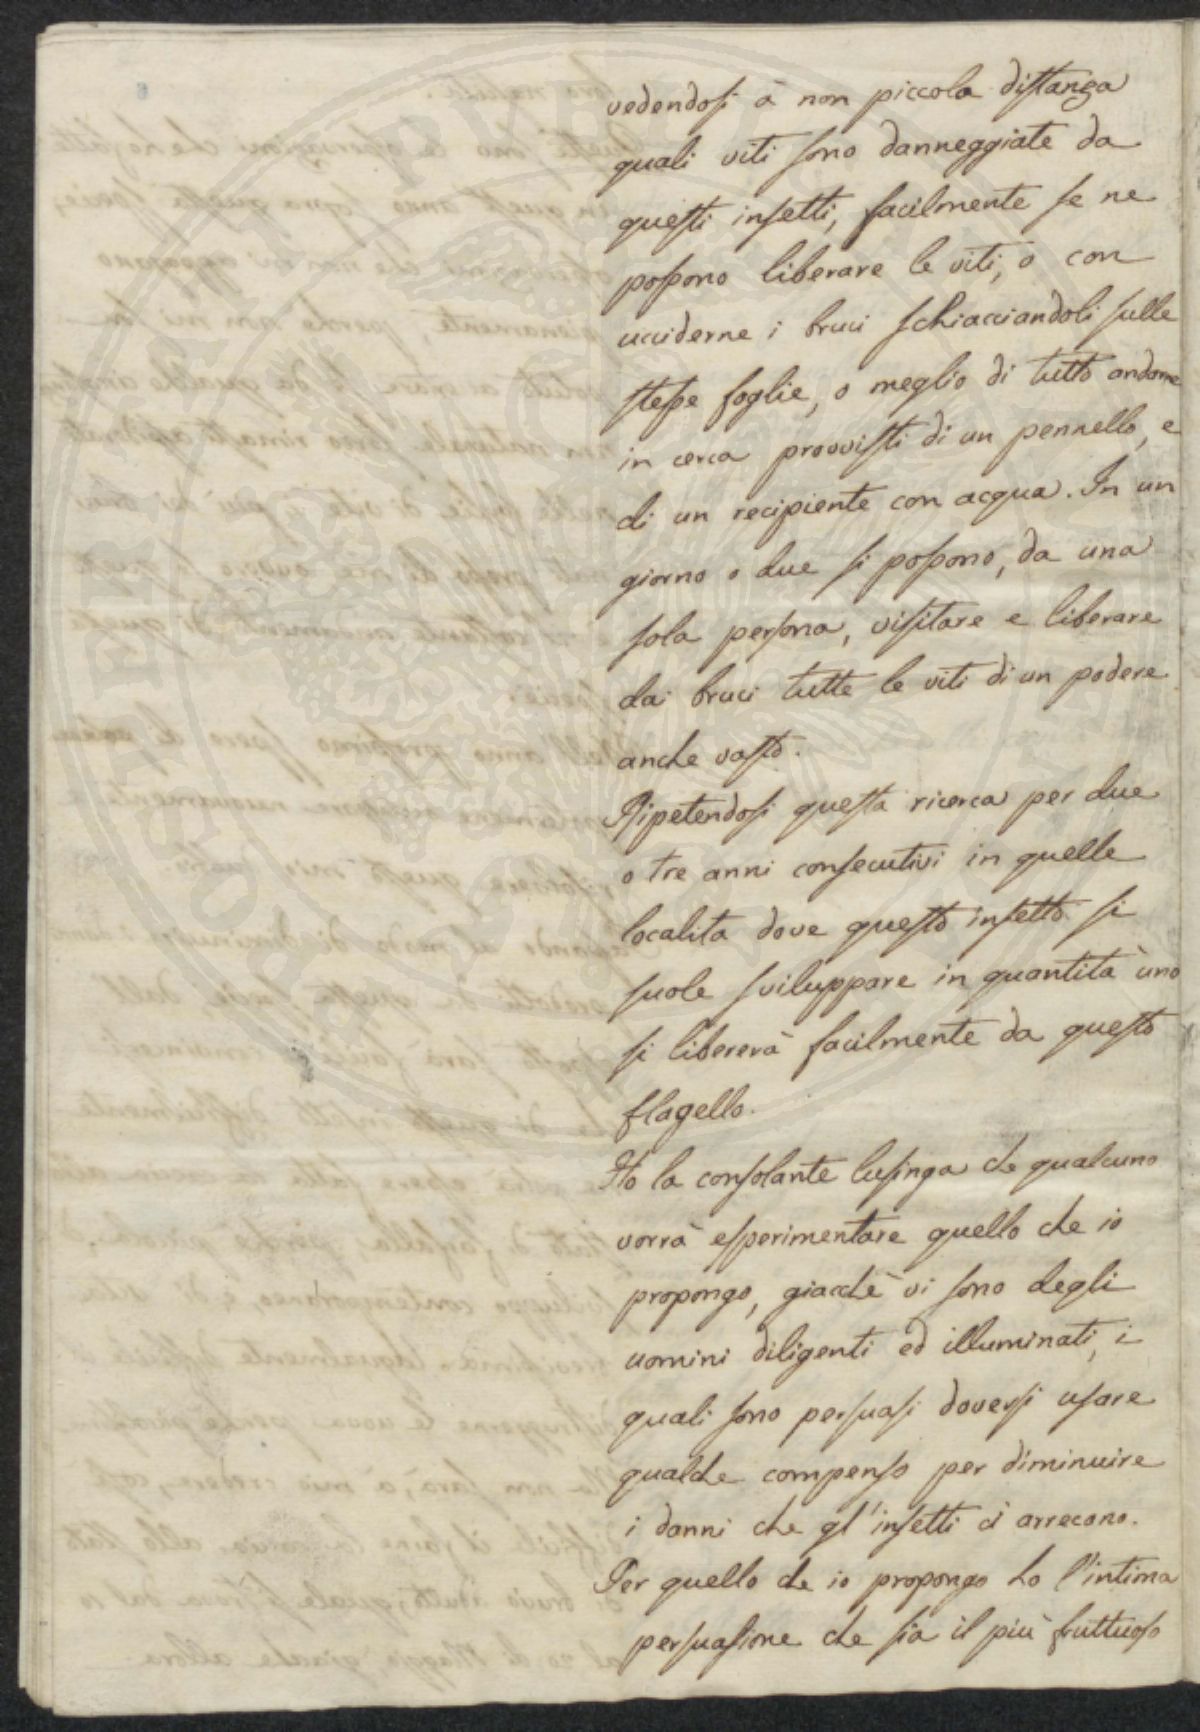 vedendosi à non piccola distanza
quali viti sono danneggiate da
questi insetti, facilmente se ne
possono liberare le viti, o con
ucciderne i bruci schiacciandoli sulle
stesse foglie, o meglio di tutto andarne
in cerca provvisti di un pennello, e
di un recipiente con acqua. In un
giorno o due si possono, da una
sola persona, visitare e liberare
dai bruci tutte le viti di un podere
anche vasto.
Ripetendosi questa ricerca per due
o tre anni consecutivi in quelle
località dove questo insetto si
suole sviluppare in quantità uno
si libererà facilmente da questo
flagello.
Ho la consolante lusinga che qualcuno
vorrà esperimentare quello che io
propongo, giacchè vi sono degli
uomini diligenti ed illuminati, i
quali sono persuasi doversi usare
qualche compenso per diminuire
i danni che gl'insetti ci arrecono.
Per quello che io propongo ho l'intima
persuasione che sia il più fruttuoso